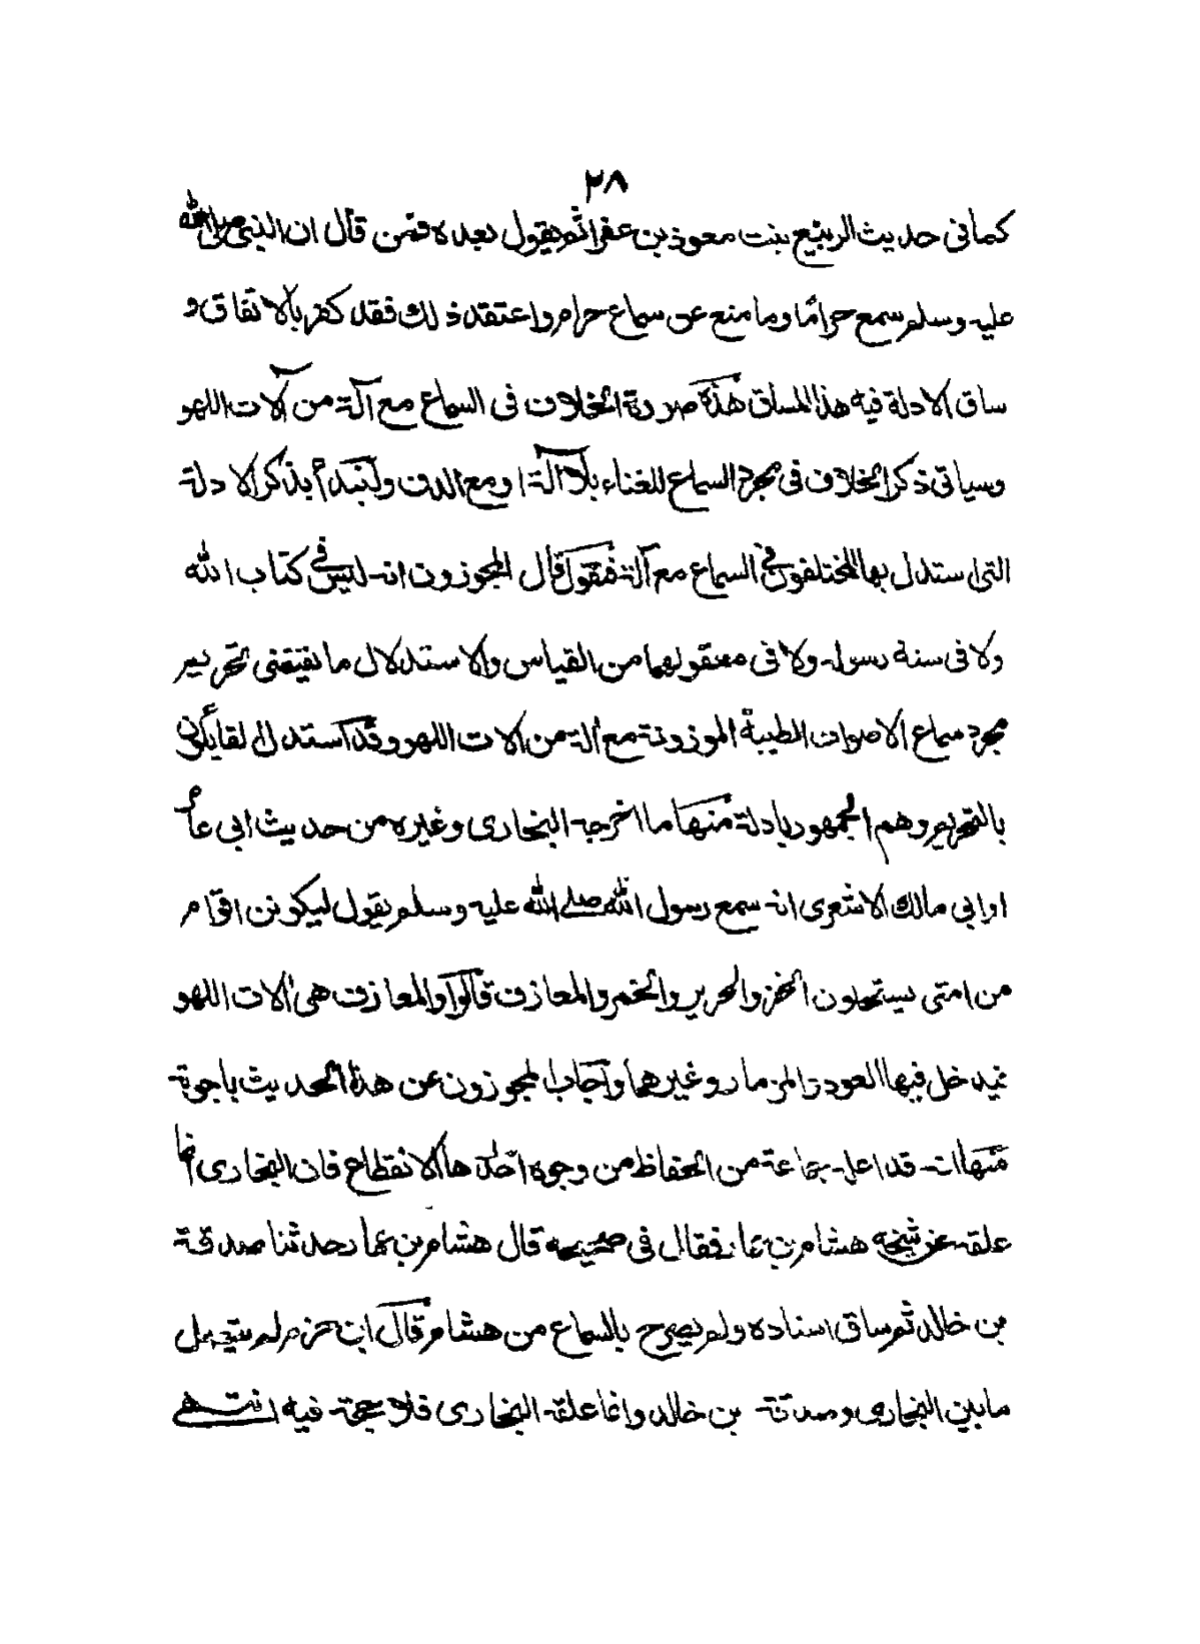 ٢٨
كما فى حديث الربيع بنت معوذ بن عفرا ثم يقول بعده فمن قال ان النبى صلى الله
عليه وسلم سمع حرامًا وما منع عن سماع حرام واعتقد ذلك فقد كفر بالاتفاق و
ساق الادلة فيه هذا المساق هذه صورة الخلاف فى السماع مع آلة من آلات اللهو
وسياتى ذكر الخلاف فى مجرد السماع للغناء بلا آلة او مع الدف ولنبدأ بذكر الادلة
التى استدل بها المختلفون فى السماع مع آلة فنقول قال المجوزون انه ليس فى كتاب الله
ولا فى سنة رسوله ولا فى معقولهما من القياس والاستدلال ما يقتضى تحريم
مجرد سماع الاصوات الطيبة الموزونة مع ألة من الات اللهو وقد استدل القايلون
بالتحريم وهم الجمهور بادلة منها ما اخرجه البخارى وغيره من حديث ابى عامر
او ابى مالك الاشعرى انه سمع رسول الله صلى الله عليه وسلم يقول ليكونن اقوام
من امتى يستحلون الخز والحرير والخمر والمعازف قالوا والمعازف هى ألات اللهو
فيدخل فيها العود والمزمار وغيرهما وأجاب المجوزون عن هذا الحديث باجوبة
منها انه قد اعله جماعة من الحفاظ من وجوه احدها الانقطاع فان البخارى انما
علقه عن شيخه هشام بن عمار فقال فى صحيحه قال هشام بن عمار حدثنا صدقة
بن خالد ثم ساق اسناده ولم يصرح بالسماع من هشام قال ابن حزم لم يتصل
ما بين البخارى وصدقة بن خالد وانما علقه البخارى فلا حجة فيه انتهى